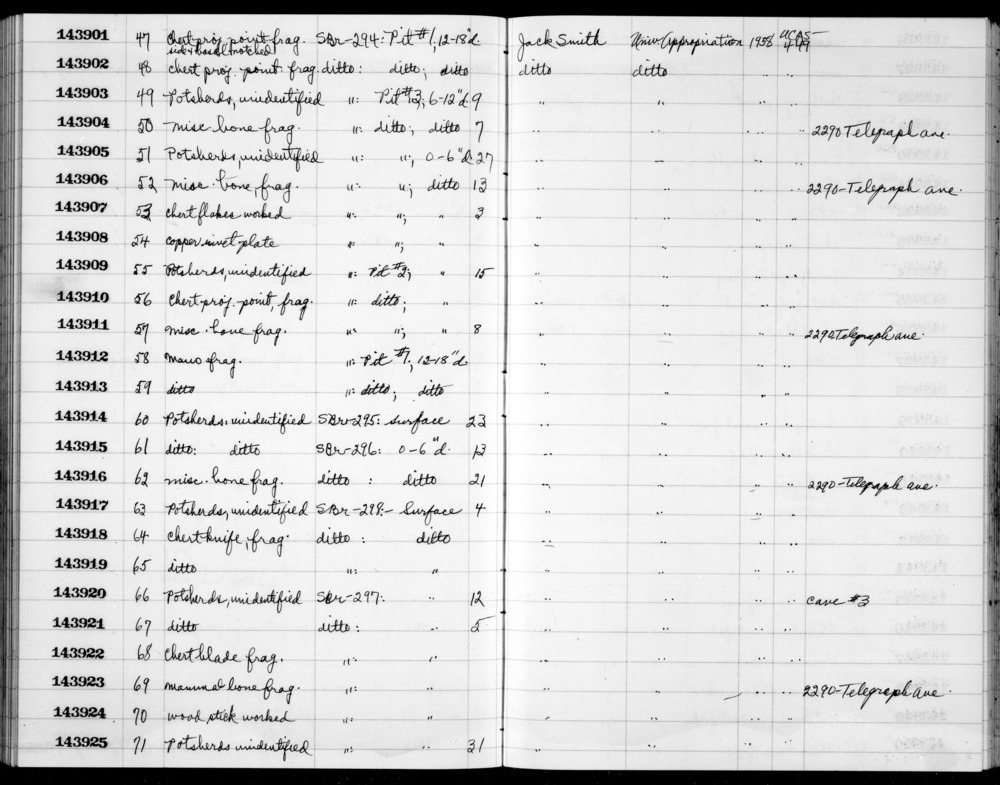 143901 47 chert proj. point frag. side & basal notched SBr-294: Pit #1, 12-18"d. Jack Smith Univ. Appropriation 1958 UCAS-
143902 48 chert proj. point frag. ditto: ditto; ditto ditto ditto " "
143903 49 Potsherds, unidentified ": Pit #3; 6-12"d. 9 " " " "
143904 50 misc. bone frag. ": ditto; ditto 7 " " " " 2290 Telegraph ave.
143905 51 Potsherds, unidentified ": "; 0-6"d. 27 " " " "
143906 52 misc. bone, frag. ": "; ditto 13 " " " " 2290-Telegraph ave.
143907 53 chert flakes worked ": "; " 3 " " " "
143908 54 copper rivet plate " "; " " " " "
143909 55 Potsherds, unidentified ": Pit #2; " 15 " " " "
143910 56 Chert proj. point, frag. ": ditto; " " " " "
143911 57 misc. bone frag. ": "; " 8 " " " " 2290 Telegraph ave.
143912 58 mano frag. ": Pit #1; 12-18"d. " " " "
143913 59 ditto ": ditto; ditto " " " "
143914 60 Potsherds: unidentified SBr-295: surface 23 " " " "
143915 61 ditto: ditto SBr-296: 0-6"d. 13 " " " "
143916 62 misc. bone frag. ditto : ditto 21 " " " " 2290-Telegraph ave.
143917 63 Potsherds, unidentified SBr-298:- Surface 4 " " " "
143918 64 Chert knife, frag. ditto : ditto " " " "
143919 65 ditto ": " " " " "
143920 66 Potsherds, unidentified SBr-297: " 12 " " " " cave #3
143921 67 ditto ditto : " 5 " " " "
143922 68 Chert blade frag. ": " " " " "
143923 69 mammal bone frag. ": " " " " 2290-Telegraph ave.
143924 70 wood stick worked ": " " " " "
143925 71 Potsherds unidentified ": " 31 " " " "